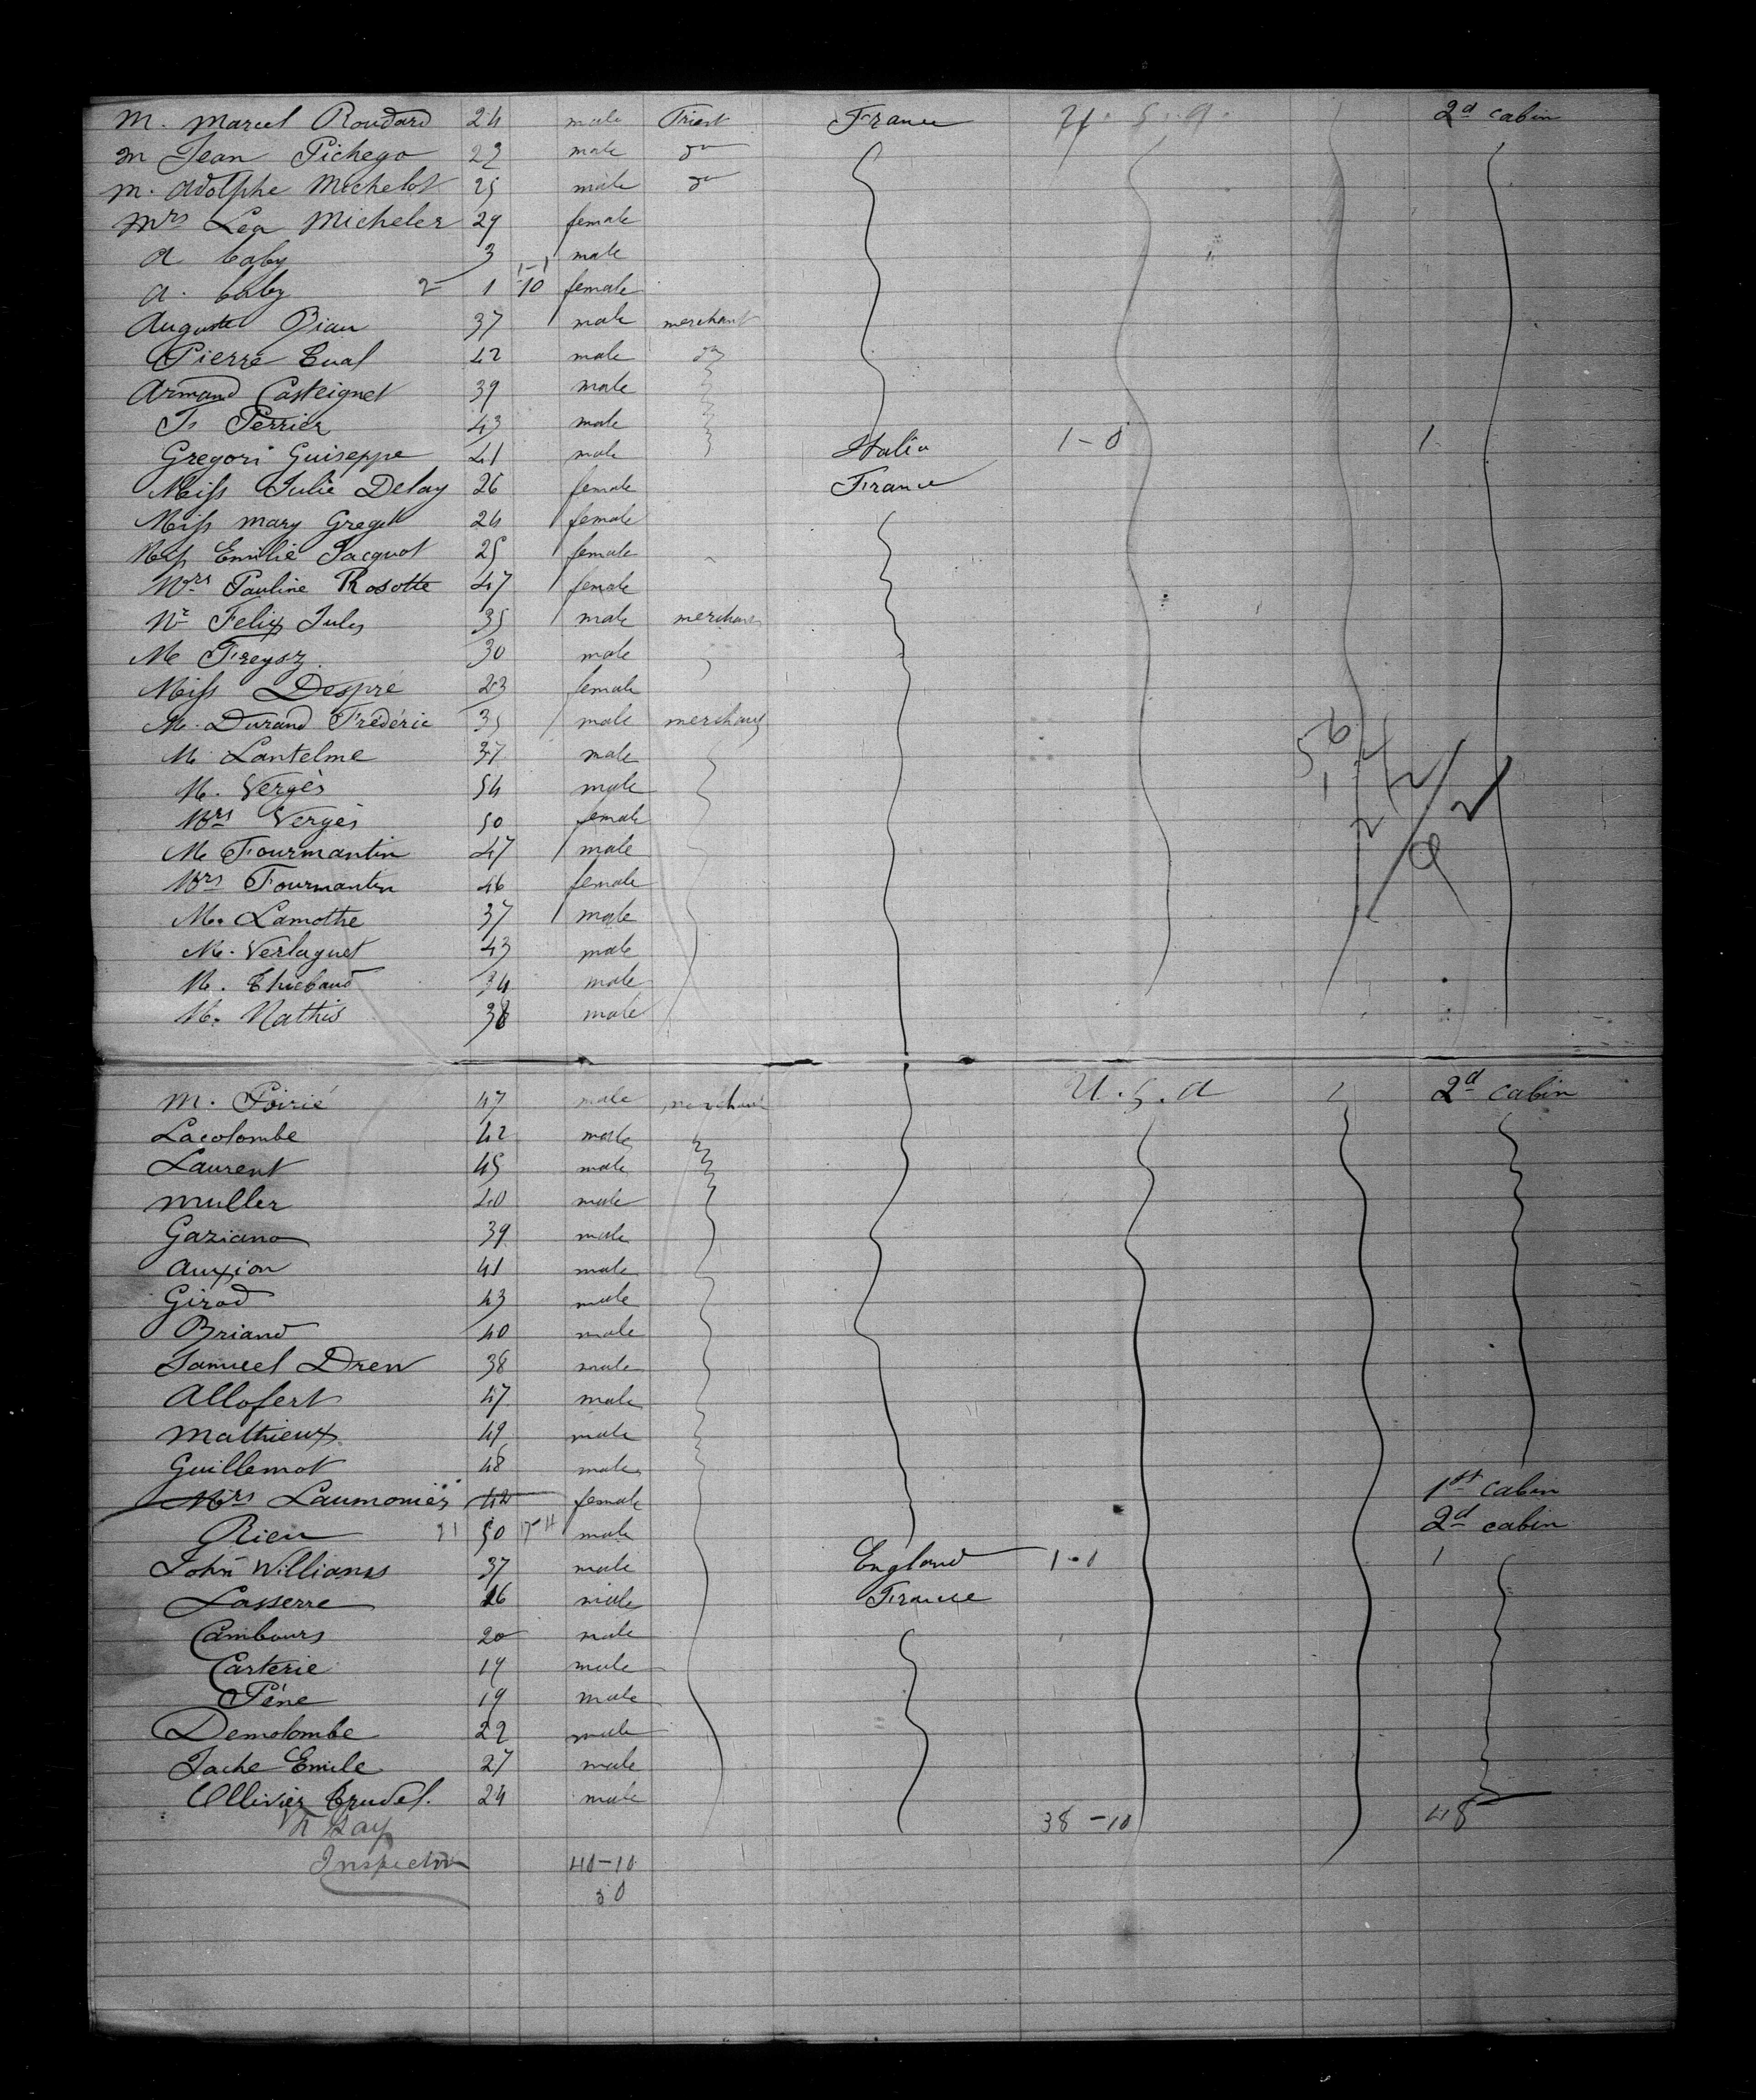 M. Marcel Roudard 24 male Priest France U. S. A. 2d cabin
M Jean Pichego 23 male do
M. Adolphe Michelot 25 male do
Mrs Lea Micheler 29 female
A baby 3 male
A. baby 2 1 10 female
Auguste Biau 37 male merchant
Pierre Tual 42 male do
Armand Casteignet 39 male
Js Perrier 43 male
Gregori Guiseppe 41 male Italia 1-0 1
Miss Julie Delay 26 female France
Miss Mary Greget 24 female
Miss Emilie Jacquot 25 female
Mrs Pauline Rosotte 47 female
Mr Felix Jules 35 male merchant
M Freysz 30 male
Miss Despré 23 female
M. Durand Frédéric 35 male merchant
M. Lantelme 37 male
M. Vergès 54 male
Mrs Vergès 50 female
M Fourmantin 47 male
Mrs Fourmantin 46 female
M. Lamothe 37 male
M. Verlaguet 43 male
M. Thiebaud 34 male
M. Mathis 38 male
M. Poirié 47 male merchant U. S. A 2d cabin
Lacolombe 42 male
Laurent 45 male
Muller 40 male
Gaziano 39 male
Auxion 41 male
Girod 43 male
Briand 40 male
Samuel Drew 38 male
Allofert 47 male
Mathieux 49 male
Guillemot 48 male
Mrs Laumonier 42 female 1st cabin
Rieu 50 male 2d cabin
John Williams 37 male England 1-0 1
Lasserre 26 male France
Cambours 20 male
Carterie 19 male
Péne 19 male
Demolombe 22 male
Jache Emile 27 male
Ollivier Trudel. 24 male
38-10 48
Inspector 40-10
30